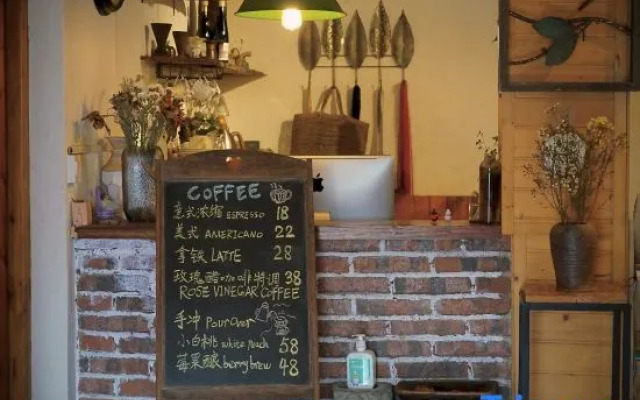 COFFEE
意式浓缩 ESPRESSO 18
美式 AMERICANO 22
拿铁 LATTE 28
玫瑰醋咖啡特调 38
ROSE VINEGAR COFFEE
手冲 Pour over
小白桃 white Peach 58
莓果酿 berry brew 48